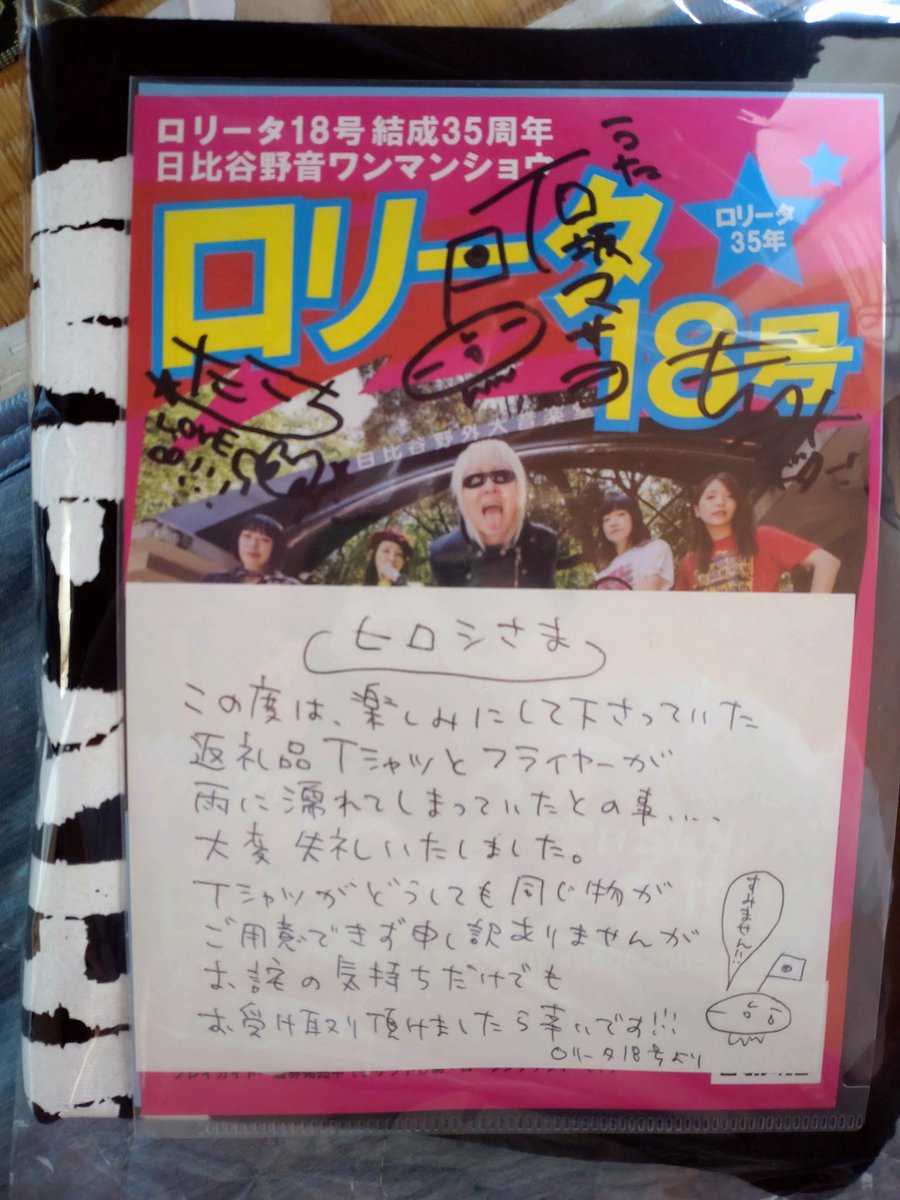 ロリータ18号 結成35周年
日比谷野音ワンマンショウ
うた
石坂マサヨ
ロリータ
18号
ロリータ
35年
たこち
LOVE
∞!!
日比谷野外大音楽
ヒロシさま
この度は、楽しみにして下さっていた
返礼品Tシャツとフライヤーが
雨に濡れてしまっていたとの事....
大変失礼いたしました。
Tシャツがどうしても同じ物が
ご用意できず申し訳ありませんが
お詫の気持ちだけでも
お受け取り頂けましたら幸いです!!!
ロリータ18号より
すみません!!